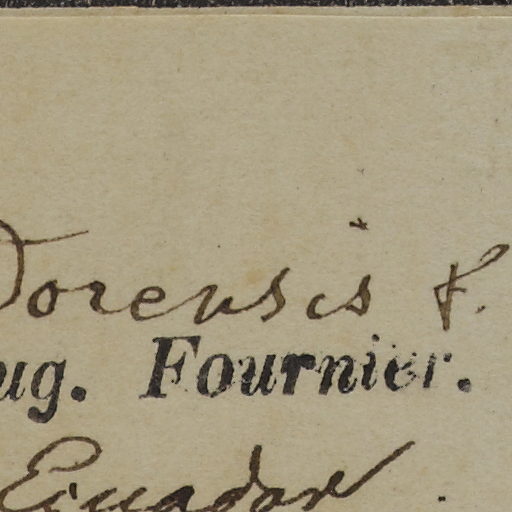 Dorensis f.
ug. Fournier.
Ecuador